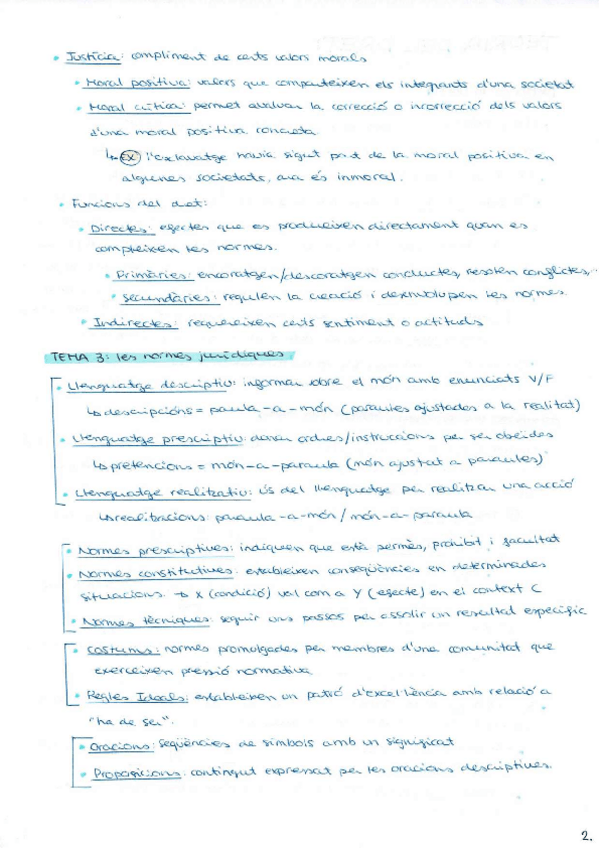 • Justícia: compliment de certs valors morals
• Moral positiva: valors que comparteixen els integrants d'una societat
• Moral crítica: permet avaluar la correcció o incorrecció dels valors
d'una moral positiva concreta
↳ EX l'esclavatge havia sigut part de la moral positiva en
algunes societats, ara és inmoral.
• Funcions del dret:
• Directes: efectes que es produeixen directament quan es
compleixen les normes.
• Primàries: encoratgen/descoratgen conductes, resolen conflictes,..
• Secundàries: regulen la creació i desenvolupen les normes.
• Indirectes: requereixen certs sentiment o actituds
TEMA 3: les normes jurídiques
• Llenguatge descriptiu: informar sobre el món amb enunciats V/F
↳ descripcións = paula-a-món (paraules ajustades a la realitat)
• Llenguatge prescriptiu: donar ordres/instruccions per ser obeides
↳ pretencions = món-a-paraula (món ajustat a paraules)
• Llenguatge realitzatiu: ús del llenguatge per realitzar una acció
↳ realitzacions: paraula-a-món/món-a-paraula
• Normes prescriptives: indiquen que està permès, prohibit i facultat
• Normes constitutives: estableixen conseqüències en determinades
situacions. → X (condició) val com a Y (efecte) en el context C
• Normes tècniques: seguir uns passos per assolir un resultat específic
• Costums: normes promulgades per membres d'una comunitat que
exerceixen pressió normativa
• Regles Ideals: estableixen un patró d'excel·lència amb relació a
"ha de ser".
• Oracions: seqüències de símbols amb un significat
• Proposicions: contingut expressat per les oracions descriptives.
2.